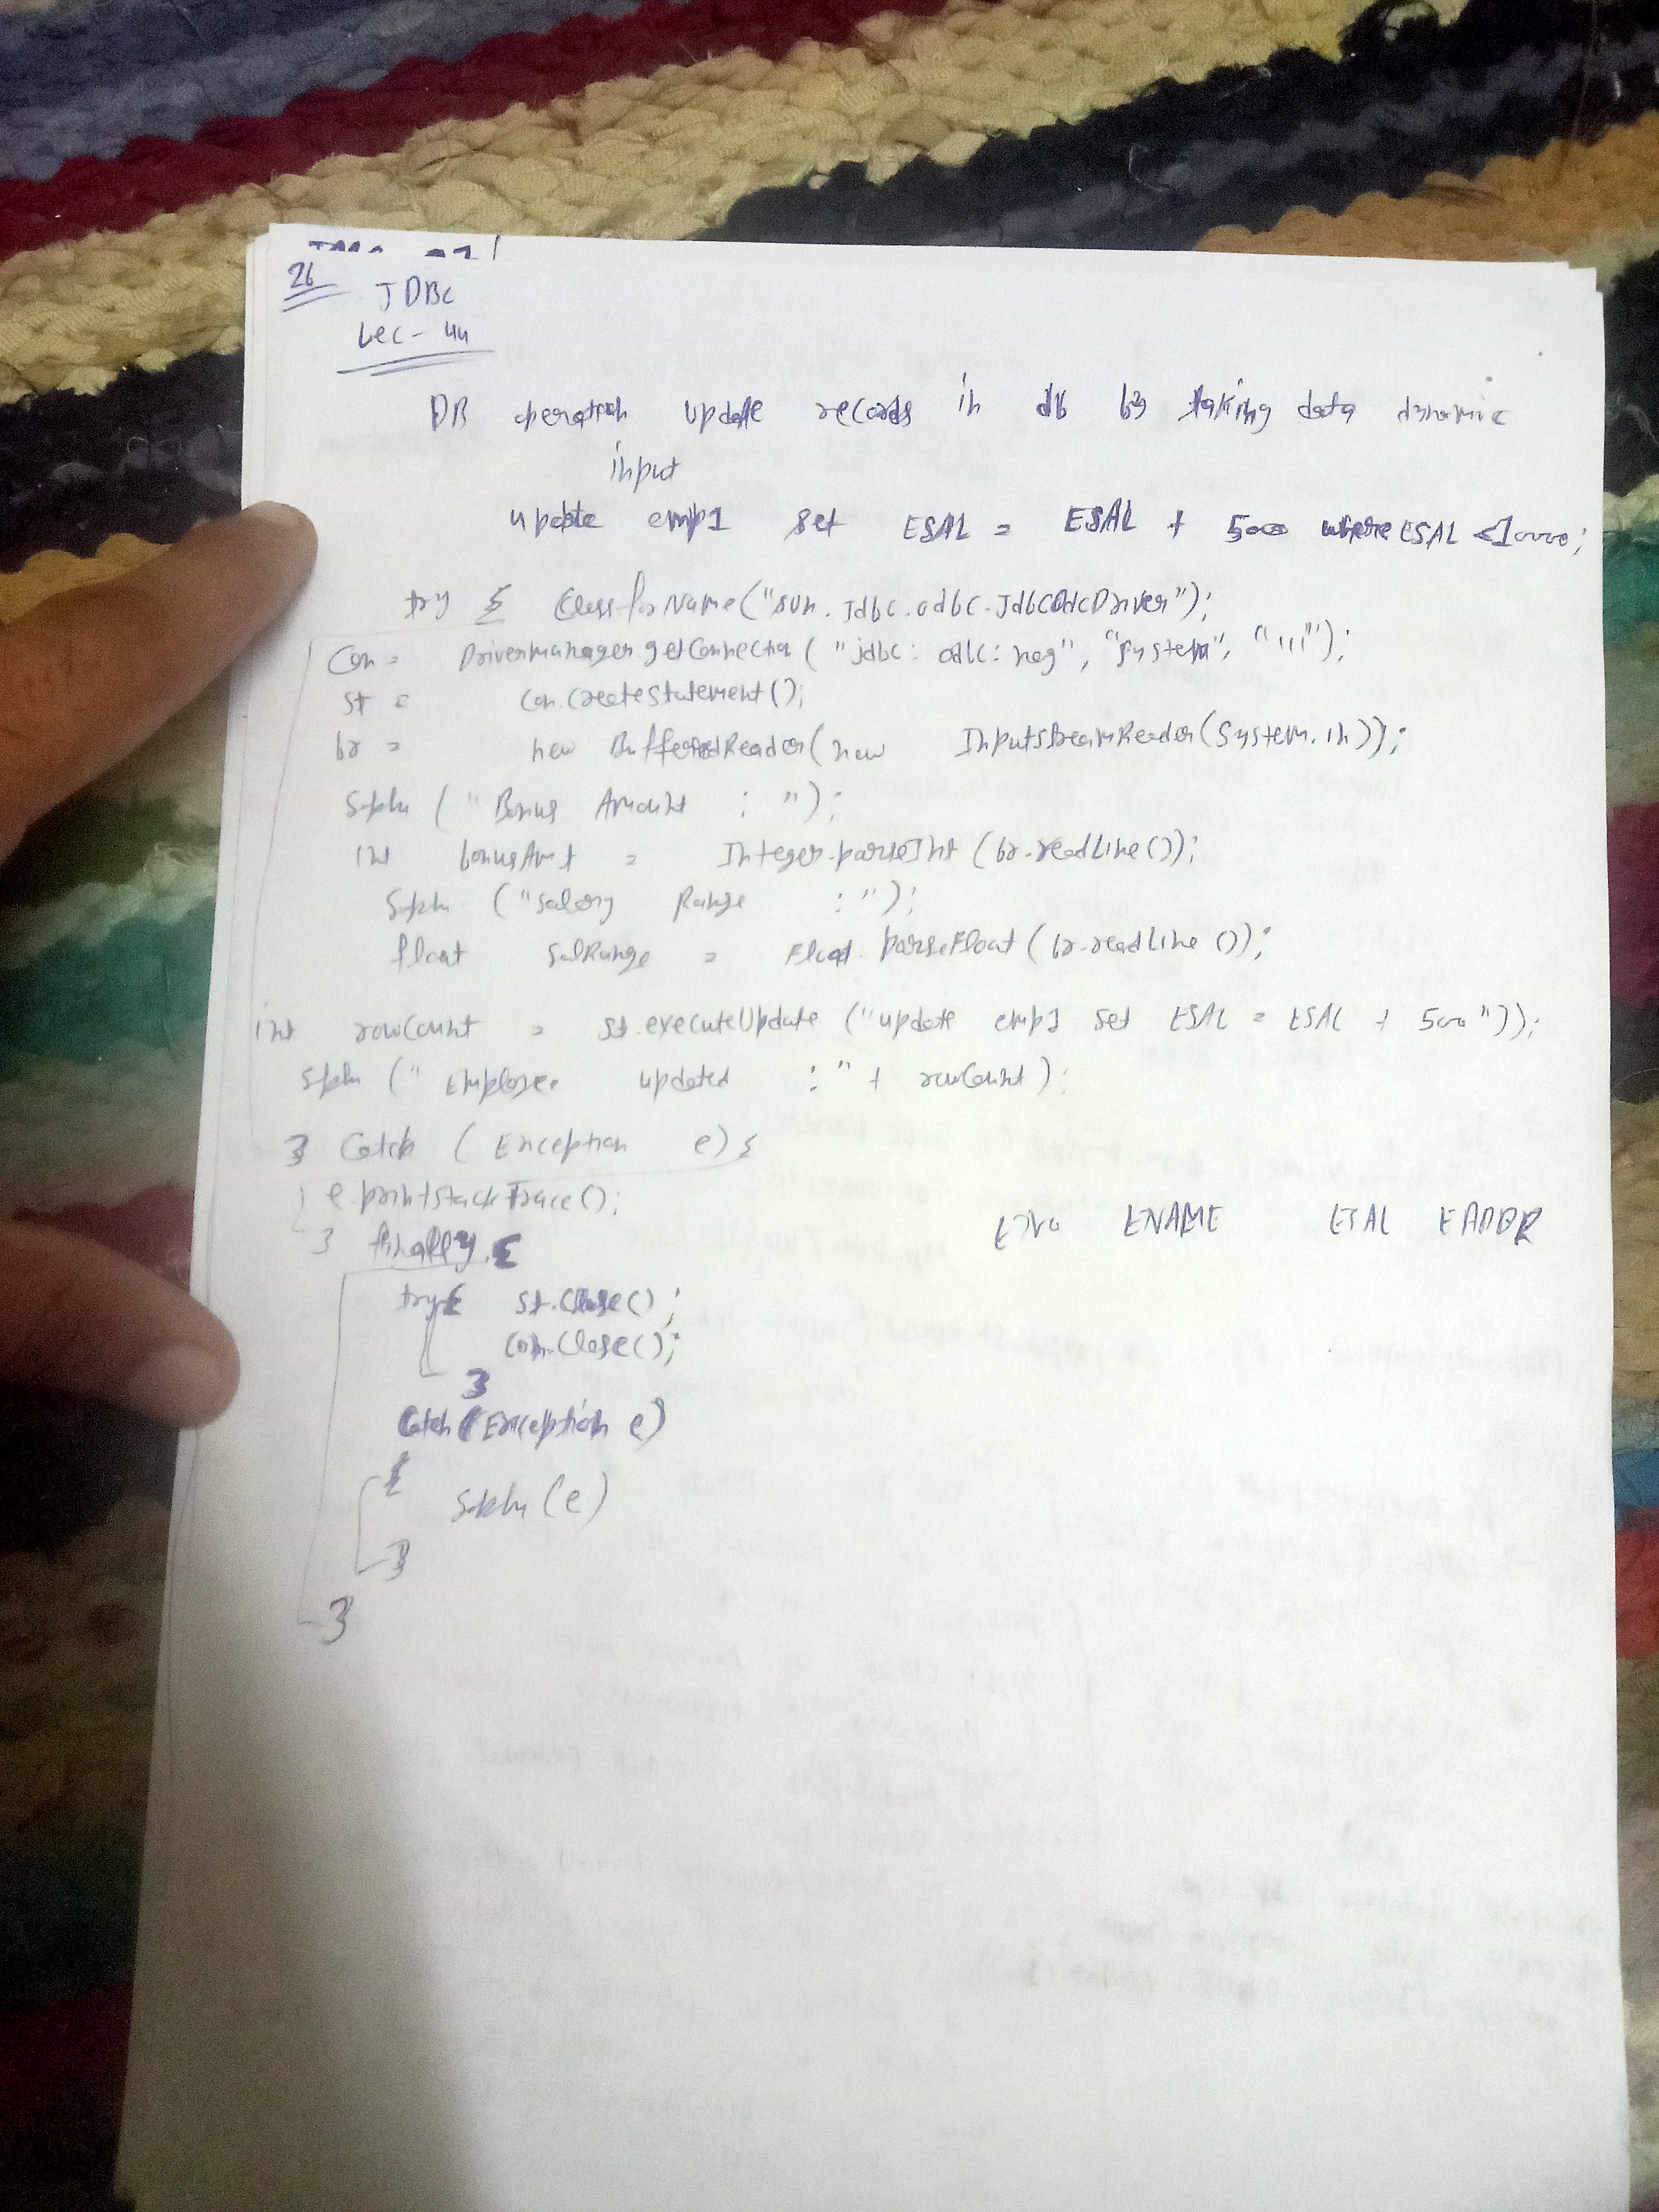 26
JDBC
Lec-44
DB operation update records in db by taking data dynamic
input
update emp1 set ESAL = ESAL + 500 where ESAL <10000;
try { Class.forName("sun.jdbc.odbc.JdbcOdbcDriver");
Con = DriverManager.getConnection ("jdbc:odbc:nag", "system", "111");
st = con.createStatement();
br = new BufferedReader(new InputStreamReader(System.in));
Sopln (" Bonus Amount : ");
int bonusAmt = Integer.parseInt (br.readLine());
Sopln ("Salary Range :");
float salRange = Float.parseFloat (br.readLine ());
int rowCount = st.executeUpdate ("update emp1 set ESAL = ESAL + 500"));
Sopln (" Employee updated :" + rowCount);
} Catch (Exception e) {
e.printStackTrace();
} finally {
ENO ENAME ESAL EADDR
try{ st.close();
con.close();
}
Catch (Exception e)
{
Sopln (e)
}
}